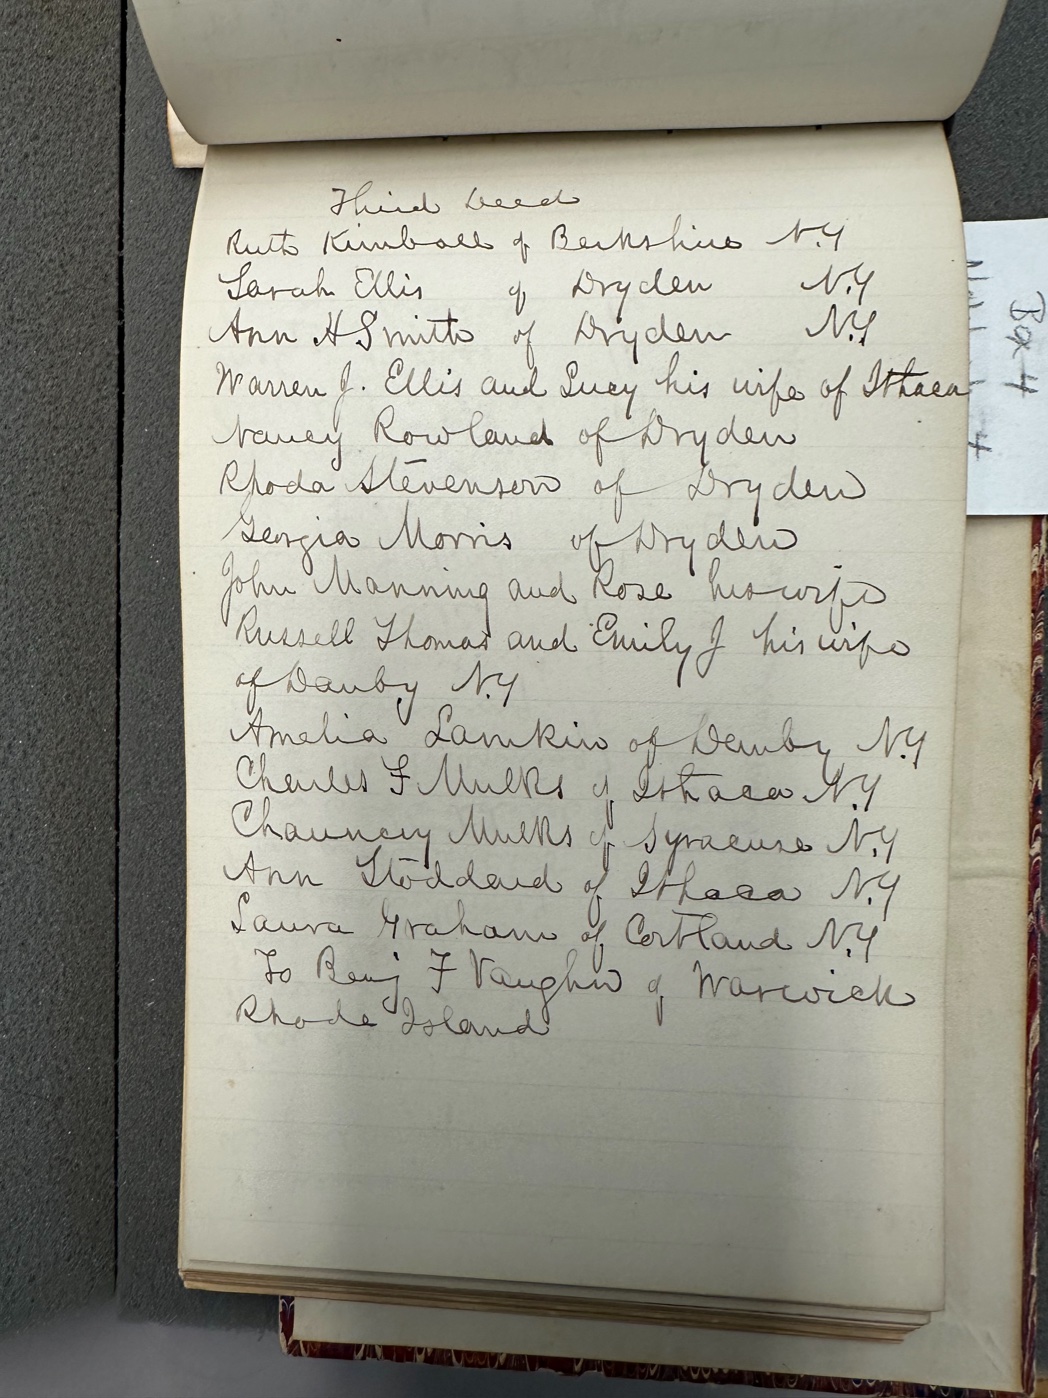 Third Deed
Ruth Kimball of Berkshire N.Y
Sarah Ellis of Dryden N.Y
Ann H Smith of Dryden N.Y
Warren J. Ellis and Lucy his wife of Ithaca
Nancy Rowland of Dryden
Rhoda Stevenson of Dryden
Georgia Morris of Dryden
John Manning and Rose his wife
Russell Thomas and Emily J his wife
of Danby N.Y
Amelia Lamkin of Danby N.Y
Charles F Mulks of Ithaca N.Y
Chauncey Mulks of Syracuse N.Y
Ann Stoddard of Ithaca N.Y
Laura Graham of Cortland N.Y
To Benj F Vaughn of Warwick
Rhode Island
Box 4